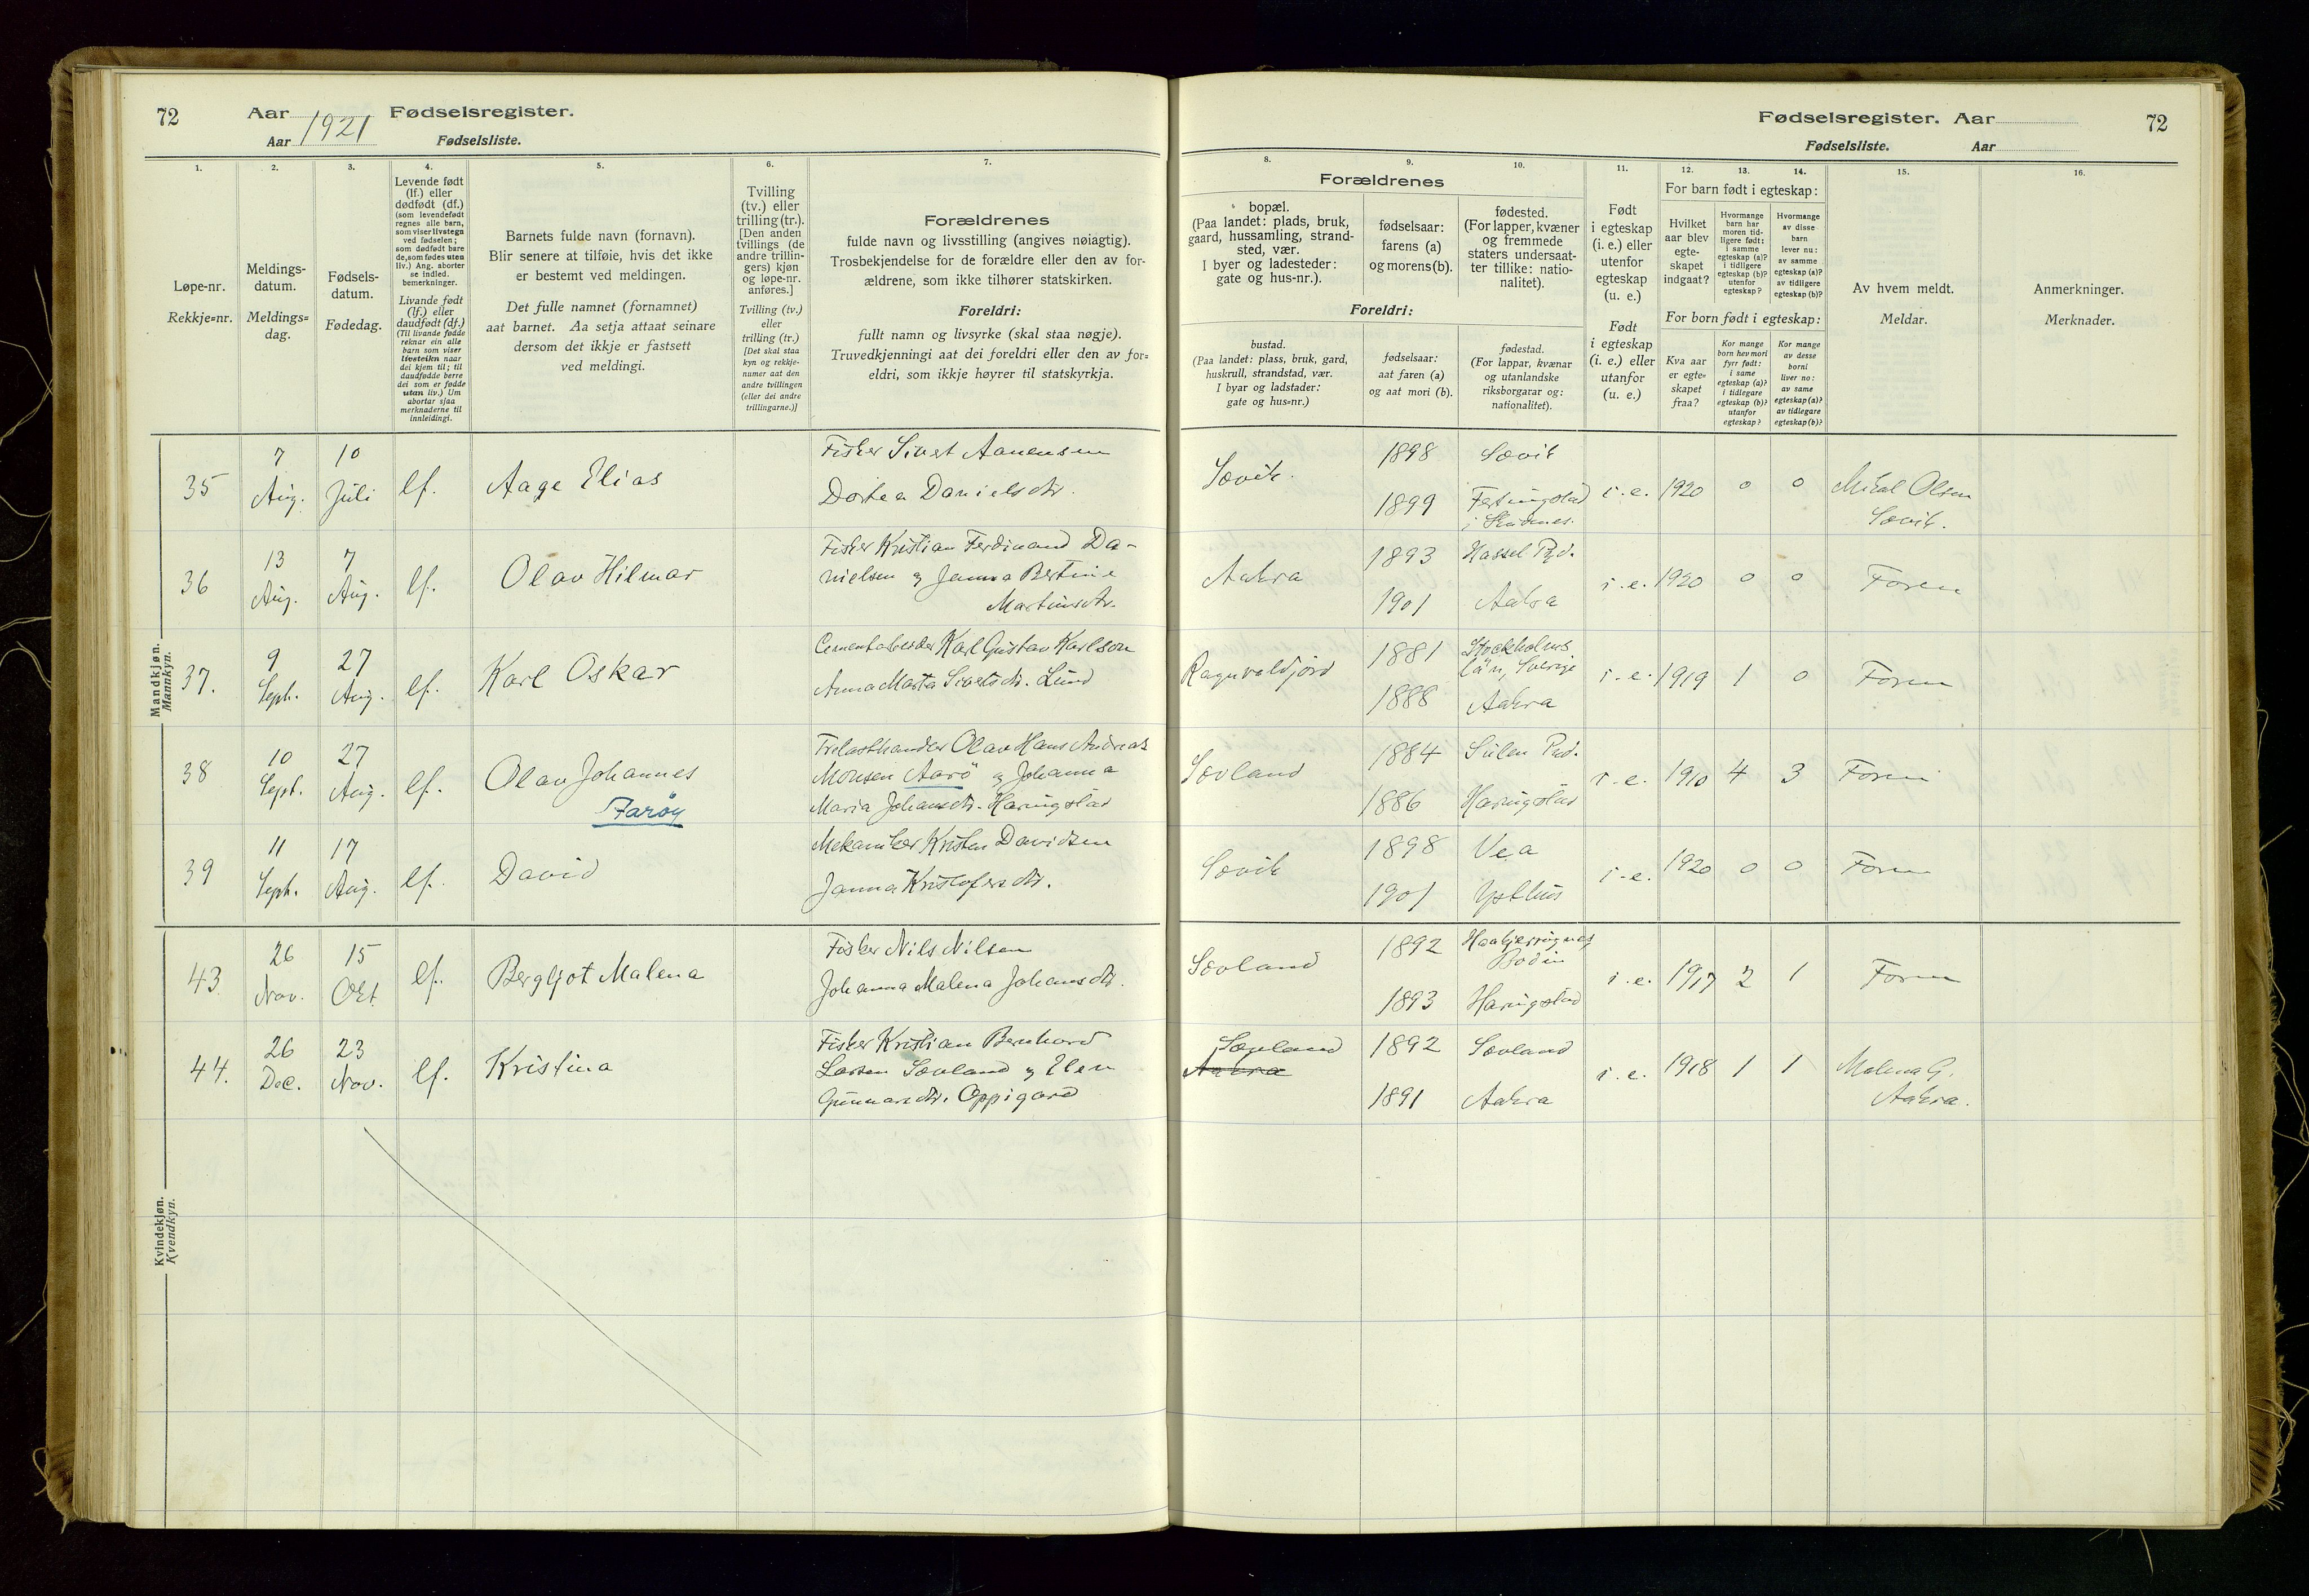 72
Aar 1921 Fødselsregister.
Aar Fødselsliste.
Fødselsregister. Aar
Fødselsliste. Aar
72
1.
Løpe-nr.
Rekkje=nr.
2.
Meldings-
datum.
Meldings=
dag.
3.
Fødsels-
datum.
Fødedag.
4.
Levende født
(lf.) eller
dødfødt (df.)
(som levendefødt
regnes alle barn,
som viser livstegn
ved fødselen;
som dødfødt bare
de, som fødes uten
liv.) Ang. aborter
se indled.
bemerkninger.
Livande født
(lf.) eller
daudfødt (df.)
(Til livande fødde
reknar ein alle
barn som viser
livsteikn naar
dei kjem til; til
daudfødde berre
dei som er fødde
utan liv.) Um
abortar sjaa
merknaderne til
innleidingi.
5.
Barnets fulde navn (fornavn).
Blir senere at tilføie, hvis det ikke
er bestemt ved meldingen.
Det fulle namnet (fornamnet)
aat barnet. Aa setja attaat seinare
dersom det ikkje er fastsett
ved meldingi.
6.
Tvilling
(tv.) eller
trilling (tr.).
[Den anden
tvillings (de
andre trillin-
gers) kjøn
og løpe-nr.
anføres.]
Tvilling (tv.)
eller
trilling (tr.)
[Det skal staa
kyn og rekkje-
numer aat den
andre tvillingen
(eller dei andre
trillingarne.)]
7.
Forældrenes
fulde navn og livsstilling (angives nøiagtig).
Trosbekjendelse for de forældre eller den av for-
ældrene, som ikke tilhører statskirken.
Foreldri:
fullt namn og livsyrke (skal staa nøgje).
Truvedkjenningi aat dei foreldri eller den av for=
eldri, som ikkje høyrer til statskyrkja.
8.
Forældrenes
bopæl.
(Paa landet: plads, bruk,
gaard, hussamling, strand-
sted, vær.
I byer og ladesteder:
gate og hus-nr.).
Foreldri:
bustad.
(Paa landet: plass, bruk, gard,
huskrull, strandstad, vær.
I byar og ladstader:
gate og hus=nr.)
9.
fødselsaar:
farens (a)
og morens (b).
fødselsaar:
aat faren (a)
og aat mori (b).
10.
fødested.
(For lapper, kvæner
og fremmede
staters undersaat-
ter tillike: natio-
nalitet).
fødestad.
(For lappar, kvænar
og utanlandske
riksborgarar og:
nationalitet).
11.
Født
i egteskap
(i. e.) eller
utenfor
egteskap
(u. e.)
Født
i egteskap
(i. e.) eller
utanfor
(u. e.)
12.
13.
14.
For barn født i egteskap:
Hvilket
aar blev
egte-
skapet
indgaat?
Hvormange
barn har
moren tid-
ligere født:
i samme
egteskap (a)?
i tidligere
egteskap (b)?
utenfor
egteskap?
Hvormange
av disse
barn
lever nu:
av samme
egteskap (a)?
av tidligere
egteskap (b)?
For born født i egteskap:
Kva aar
er egte=
skapet
fraa?
Kor mange
born hev mori
fyrr født:
i same
egteskap (a)?
i tidlegare
egteskap (b)?
utanfor
egteskap?
Kor mange
av desse
borni
liver no:
av same
egteskap (a)?
av tidlegare
egteskap (b)?
15.
Av hvem meldt.
Meldar.
16.
Anmerkninger.
Merknader.
Mandkjøn.
Mannkyn.
35
7
Aug.
10
Juli
lf.
Aage Elias
Fisker Sivert Aanensen
Dortea Danielsdtr.
Sævik.
1898
1899
Sævik
i Skudnes.
i. e. 1920 0 0
Mikal Olsen
Sævik.
36
13
Aug.
7
Aug.
lf.
Olav Hilmar
Fisker Kristian Ferdinand Da-
nielsen og Janna Bertine
Martinsdtr.
Aakra
1893
1901
Hassel Pgd.
Aakra
i. e. 1920 0 0
Faren
37.
9
Sept.
27
Aug.
lf.
Karl Oskar
Cementarbeider Karl Gustav Karlson
Anna Marta Sivertsdtr. Lund
1881
1888
Stockholms
län, Sverige
Aakra
i. e. 1919 1 0
Faren
38
10
Sept.
27
Aug.
lf.
Olav Johannes
Farøy
Trelasthandler Olav Hans Andreas
Monsen Aarö og Johanna
Maria Johansdtr. Haringstad
Sævland
1884
1886
Sulen Pgd.
Haringstad
i. e. 1910 4 3
Faren
39
11
Sept.
17
Aug.
lf.
David
Mekaniker Kristen Davidsen
Janna Kristofersdtr.
Sævik
1898
1901
Vea
i. e. 1920 0 0
Faren
Kvindekjøn.
Kvendkyn.
43
26
Nov.
15
Okt.
lf.
Bergljot Malena
Fisker Nils Nilsen
Johanna Malena Johansdtr.
Sævland
1892
1893
Bodin
Haringstad
i. e. 1917 2 1
Faren
44.
26
Dec.
23
Nov.
lf.
Kristina
Fisker Kristian Bernhard
Larsen Sævland og Elen
Gunnarsdtr. Oppigard
Sævland
Aakra
1892
1891
Sævland
Aakra
i. e. 1918 1 1
Malena G.
Aakra.